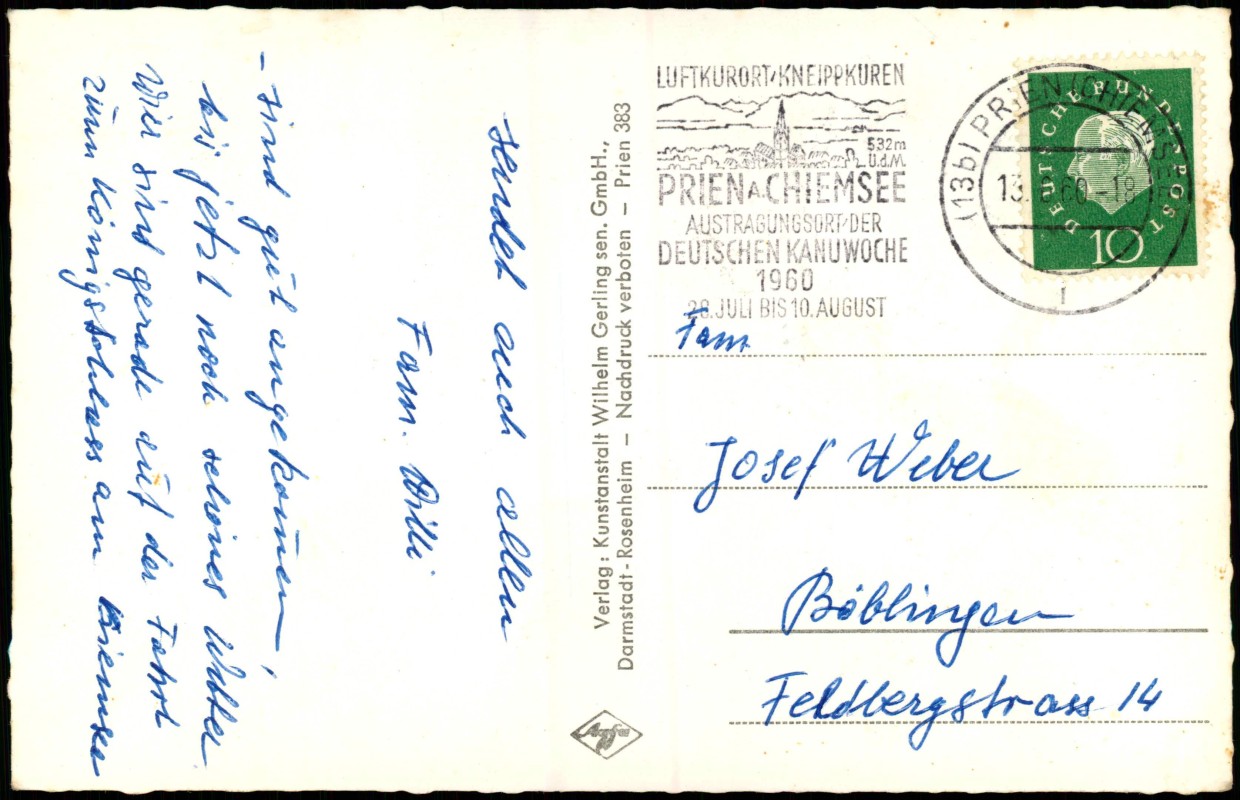 sendet auch allen
Fam. Willi
– sind gut angekom̄en,
bis jetzt noch schönes Wetter
Wir sind gerade auf der Fahrt
zum Königschloss am Kiemsee
Verlag: Kunstanstalt Wilhelm Gerling sen. GmbH.,
Darmstadt - Rosenheim – Nachdruck verboten – Prien 383
Agfa
LUFTKURORT·KNEIPPKUREN
532m
Ü.d.M.
PRIEN A. CHIEMSEE
AUSTRAGUNGSORT DER
DEUTSCHEN KANUWOCHE
1960
28. JULI BIS 10. AUGUST
(13b) PRIEN (CHIEMSEE)
13. 60 -18
DEUTSCHE BUNDESPOST
10
Fam
Josef Weber
Böblingen
Feldbergstrass 14